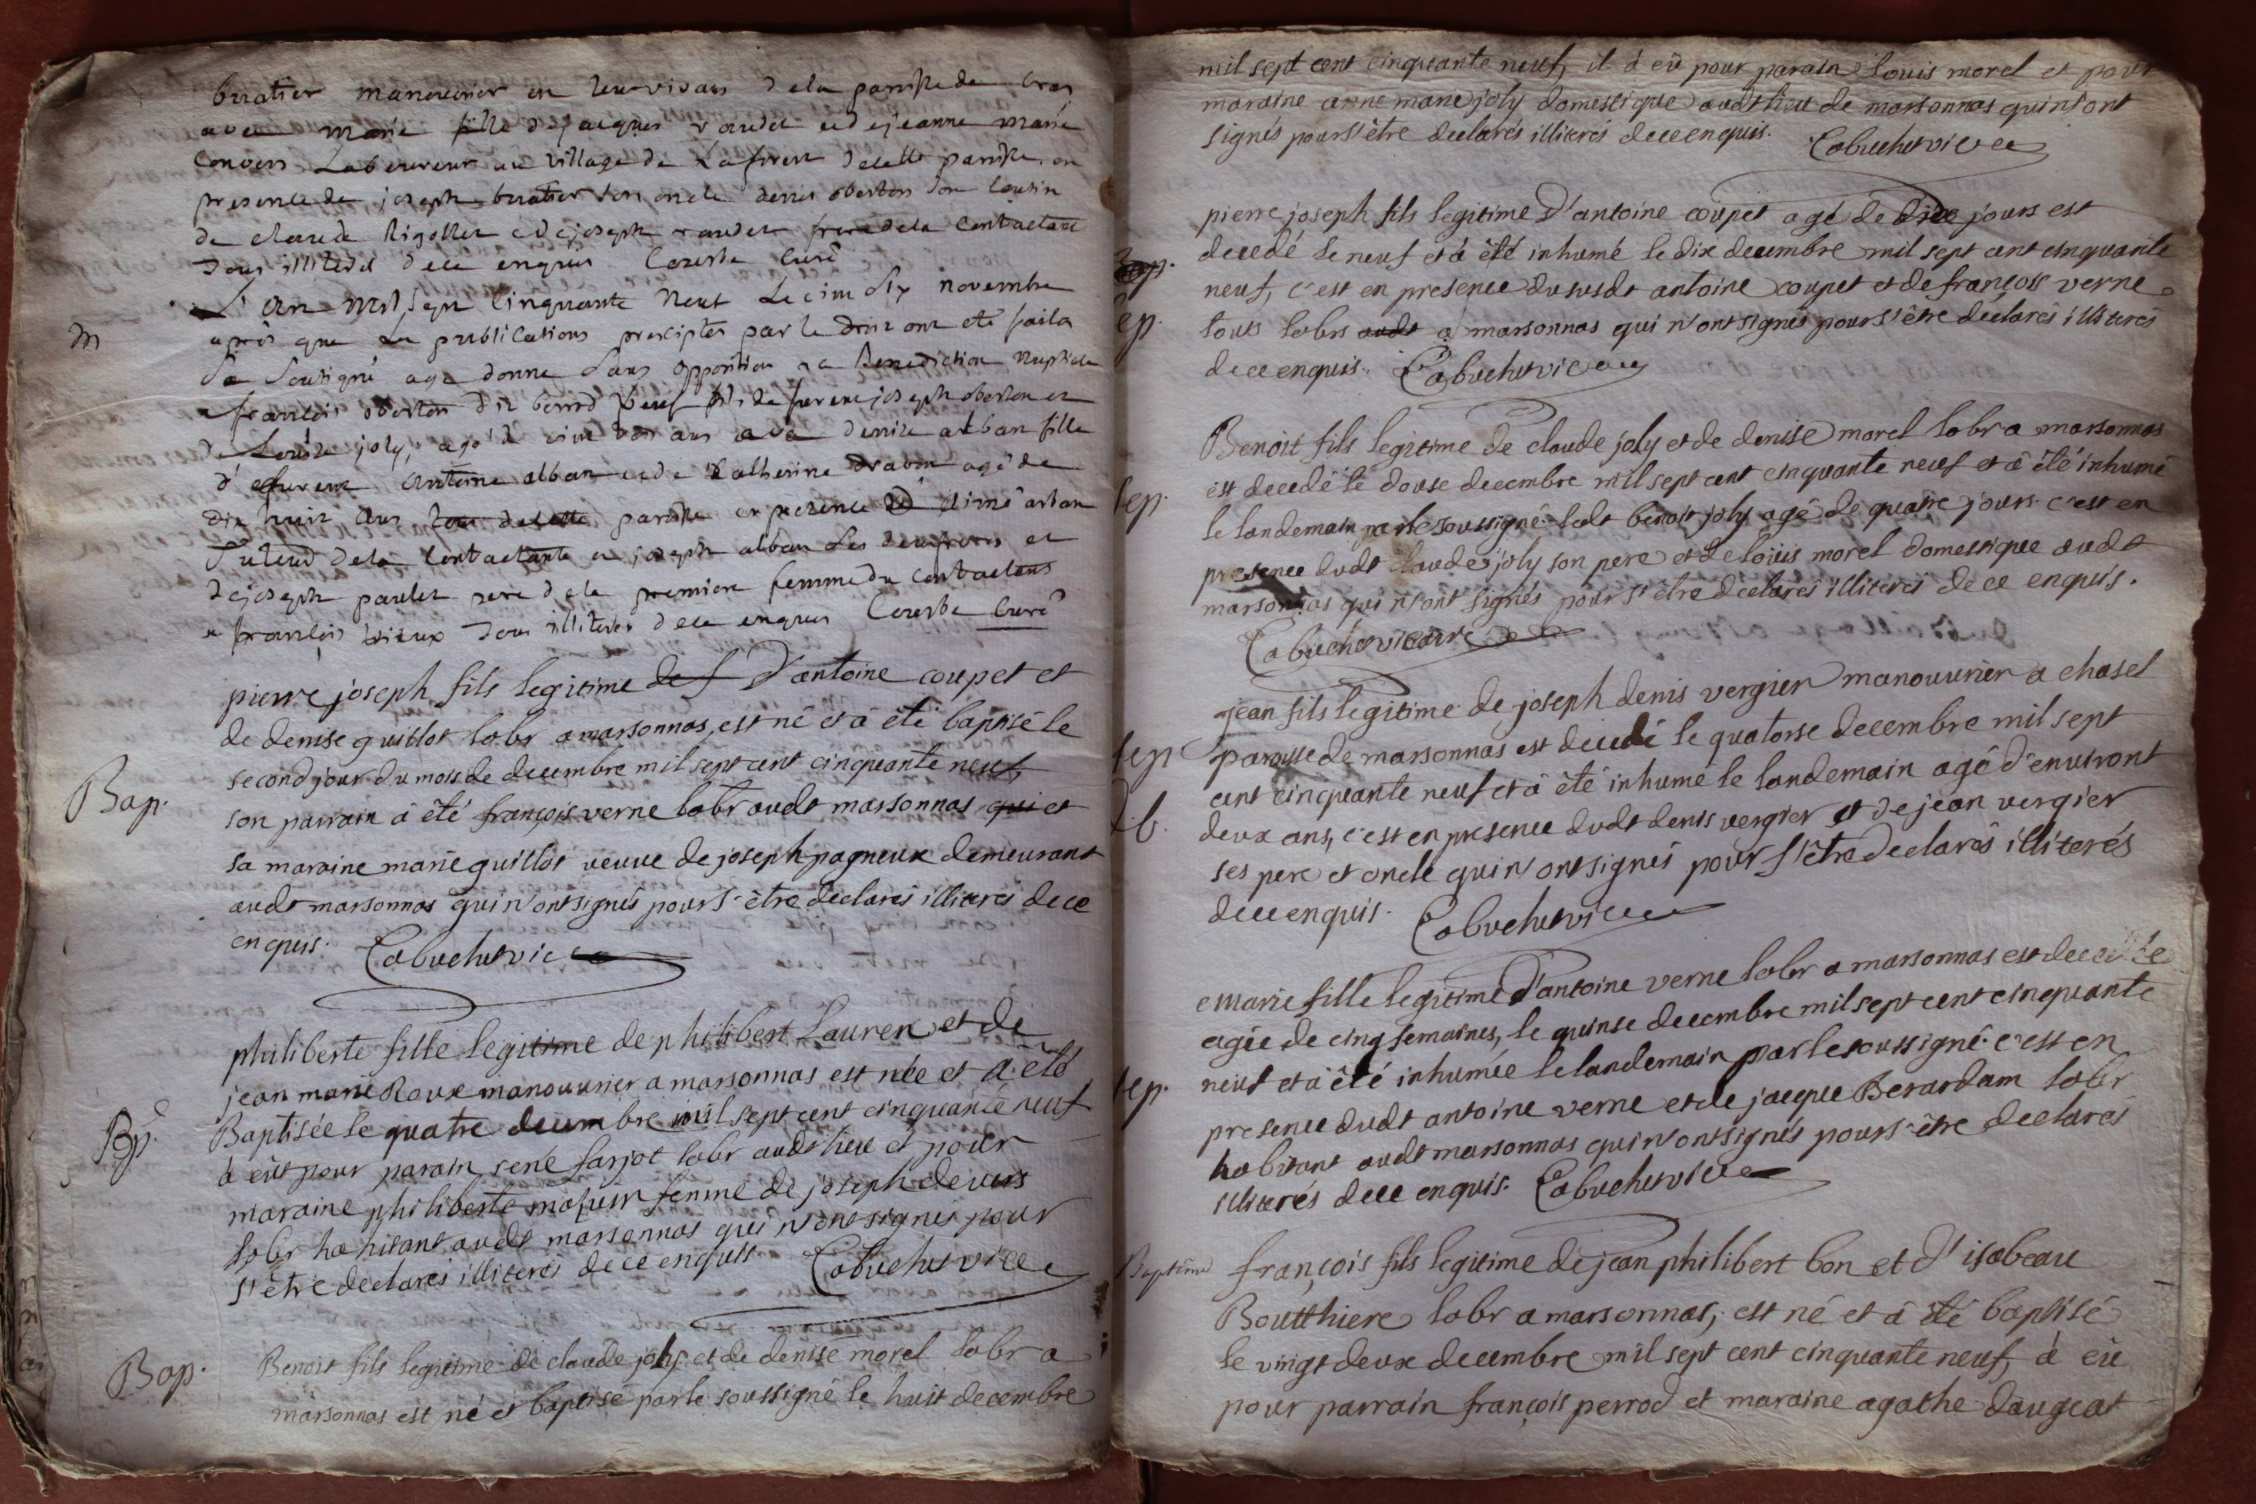 buatier manouvrier en leur vivans dela paroisse de Cras
avec marie fille de jacques vaudet et de jeanne marie
Convers Laboureur au village de La forest de cette paroisse en
presence de joseph buatier son oncle denis oberton son Cousin
de claude Rigollet et de joseph vaudet frere dela Contractante
Tous illiteres de ce enquis Courbe Curé
m
L'An Mil sept Cinquante Neuf Le cinq novembre
après que Les publications prescrites par le droit ont eté faites
Le Soussigné a donne Sans opposition La Benediction Nuptiale
a francois oberton dit fils de furent joseph oberton et
de joly, agé de ans avec denise alban fille
d'efurent antoine alban et de Catherine agé de
dix huit ans de cette paroisse en presence d' alban
Tuteur dela Contractante et joseph alban Les deux freres et
de joseph paulet pere dela premiere femme du Contractans
et francois vieux Tous illiteres de ce enquis Courbe Curé
Bap.
pierre joseph fils legitime de f d'antoine coupet et
de denise guillot labr a marsonnas, est né et à été baptisé le
second jour du mois de decembre mil sept cent cinquante neuf,
son parrain à été françois verne labr audt marsonnas qui et
sa maraine marie guillot veuve de joseph pagneux demeurant
audt marsonnas qui n'ont signés pour s'être déclarés illiterés de ce
enquis. Cabuchet vice
Bp.
philiberte fille legitime de philibert Lauren et de
jean marie Roux manouvrier a marsonnas est née et à été
Baptisée le quatre decembre mil sept cent cinquante neuf
à eût pour parain rené farjot labr audt lieu et pour
maraine philiberte femme de joseph devers
labr habitant audt marsonnas qui n'ont signes pour
s'être declarés illiterés de ce enquis Cabuchet vice
Bap.
Benoit fils legitime de claude joly et de denise morel labr a
marsonnas est né et baptisé par le soussigné le huit decembre
mil sept cent cinquante neuf, il à eü pour parain Louis morel et pour
maraine anne marie joly domestique audt lieu de marsonnas qui n'ont
signés pour s'être declarés illiterés de ce enquis. Cabuchet vice
Bap.
Sep.
pierre joseph fils legitime d'antoine coupet agé de dix jours est
decedé le neuf et à été inhumé le dix decembre mil sept cent cinquante
neuf, c'est en presence du susdt antoine coupet et de françois verne
touts labrs audt a marsonnas qui n'ont signés pour s'être déclarés illiterés
de ce enquis. Cabuchet vice
Sep.
Benoit fils legitime de claude joly et de denise morel labr a marsonnas
est decedé le douse decembre mil sept cent cinquante neuf et à été inhumé
le landemain par le soussigné ledt benoit joly agé de quatre jours c'est en
presence dudt claude joly son pere et de loüis morel domestique audt
marsonnas qui n'ont signés pour s'être declarés illiterés de ce enquis.
Cabuchet vicaire
Sep
jean fils legitime de joseph denis vergier manouvrier a chasel
paroisse de marsonnas est decedé le quatorse decembre mil sept
cent cinquante neuf et à été inhumé le landemain agé d'environt
deux ans, c'est en presence dudt denis vergier et de jean vergier
ses pere et oncle qui n'ont signés pour s'être declarés illiterés
de ce enquis. Cabuchet vice
Sep.
Marie fille legitime d'antoine verne labr a marsonnas est decedée
agée de cinq semaines, le quinse decembre mil sept cent cinquante
neuf et à été inhumée le landemain par le soussigné c'est en
presence dudt antoine verne et de jacque Berardam labr
habitant audt marsonnas qui n'ont signés pour s'être declarés
illiterés de ce enquis. Cabuchet vice
Baptême
françois fils legitime de jean philibert bon et d'isabeau
Boutthiere labr a marsonnas, est né et à été baptisé
le vingt deux decembre mil sept cent cinquante neuf, à eü
pour parrain françois perrod et maraine agathe daugeat